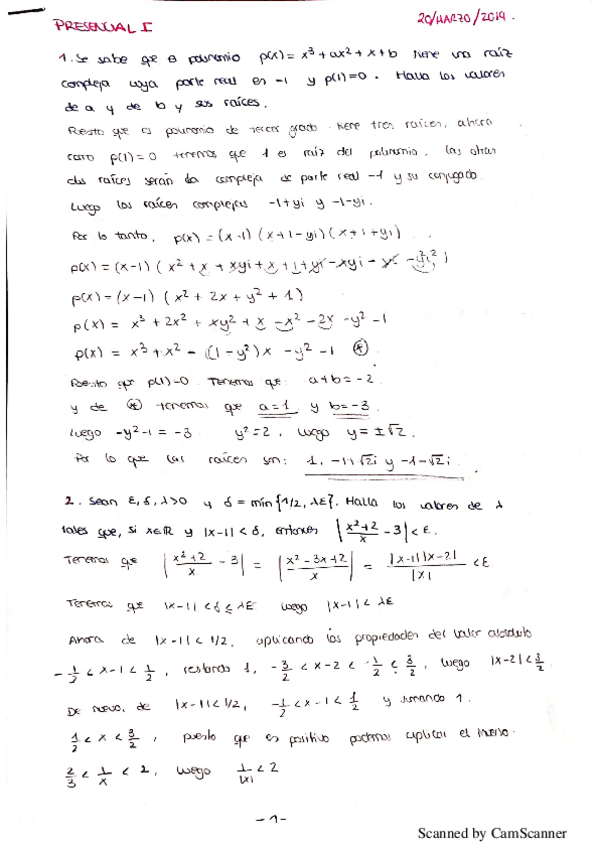 PRESENCIAL I
20/MARZO/2019.
1. Se sabe que el polinomio p(x) = x³ + ax² + x + b tiene una raíz
compleja cuya parte real es -1 y p(1)=0. Halla los valores
de a y de b y sus raíces.
Puesto que es polinomio de tercer grado tiene tres raíces, ahora
como p(1)=0 tenemos que 1 es raíz del polinomio. Las otras
dos raíces serán la compleja de parte real -1 y su conjugado.
Luego las raíces complejas -1+yi y -1-yi.
Por lo tanto, p(x) = (x-1) (x+1-yi) (x+1+yi)
p(x) = (x-1) (x² + x + xyi + x + 1 + yi - xyi - yi - y²i²)
p(x) = (x-1) (x² + 2x + y² + 1)
p(x) = x³ + 2x² + xy² + x - x² - 2x - y² - 1
p(x) = x³ + x² - (1-y²)x - y² - 1 (*)
Puesto que p(1)=0 Tenemos que: a+b = -2
y de (*) tenemos que a=1 y b=-3.
Luego -y²-1 = -3 y²=2, luego y=±√2.
Por lo que las raíces son: 1, -1+√2i y -1-√2i.
2. Sean ε, δ, λ>0 y δ = min{1/2, λε}. Halla los valores de λ
tales que, si x∈ℝ y |x-1| < δ, entonces |x²+2/x - 3| < ε.
Tenemos que |x²+2/x - 3| = |x²-3x+2/x| = |x-1||x-2|/|x| < ε
Tenemos que |x-1| < δ ≤ λε luego |x-1| < λε
Ahora de |x-1| < 1/2, aplicando las propiedades del valor absoluto
-1/2 < x-1 < 1/2, restando 1, -3/2 < x-2 < -1/2 < 3/2, luego |x-2| < 3/2
De nuevo, de |x-1| < 1/2, -1/2 < x-1 < 1/2 y sumando 1.
1/2 < x < 3/2, puesto que es positivo podemos aplicar el inverso.
2/3 < 1/x < 2, luego 1/|x| < 2
-1-
Scanned by CamScanner